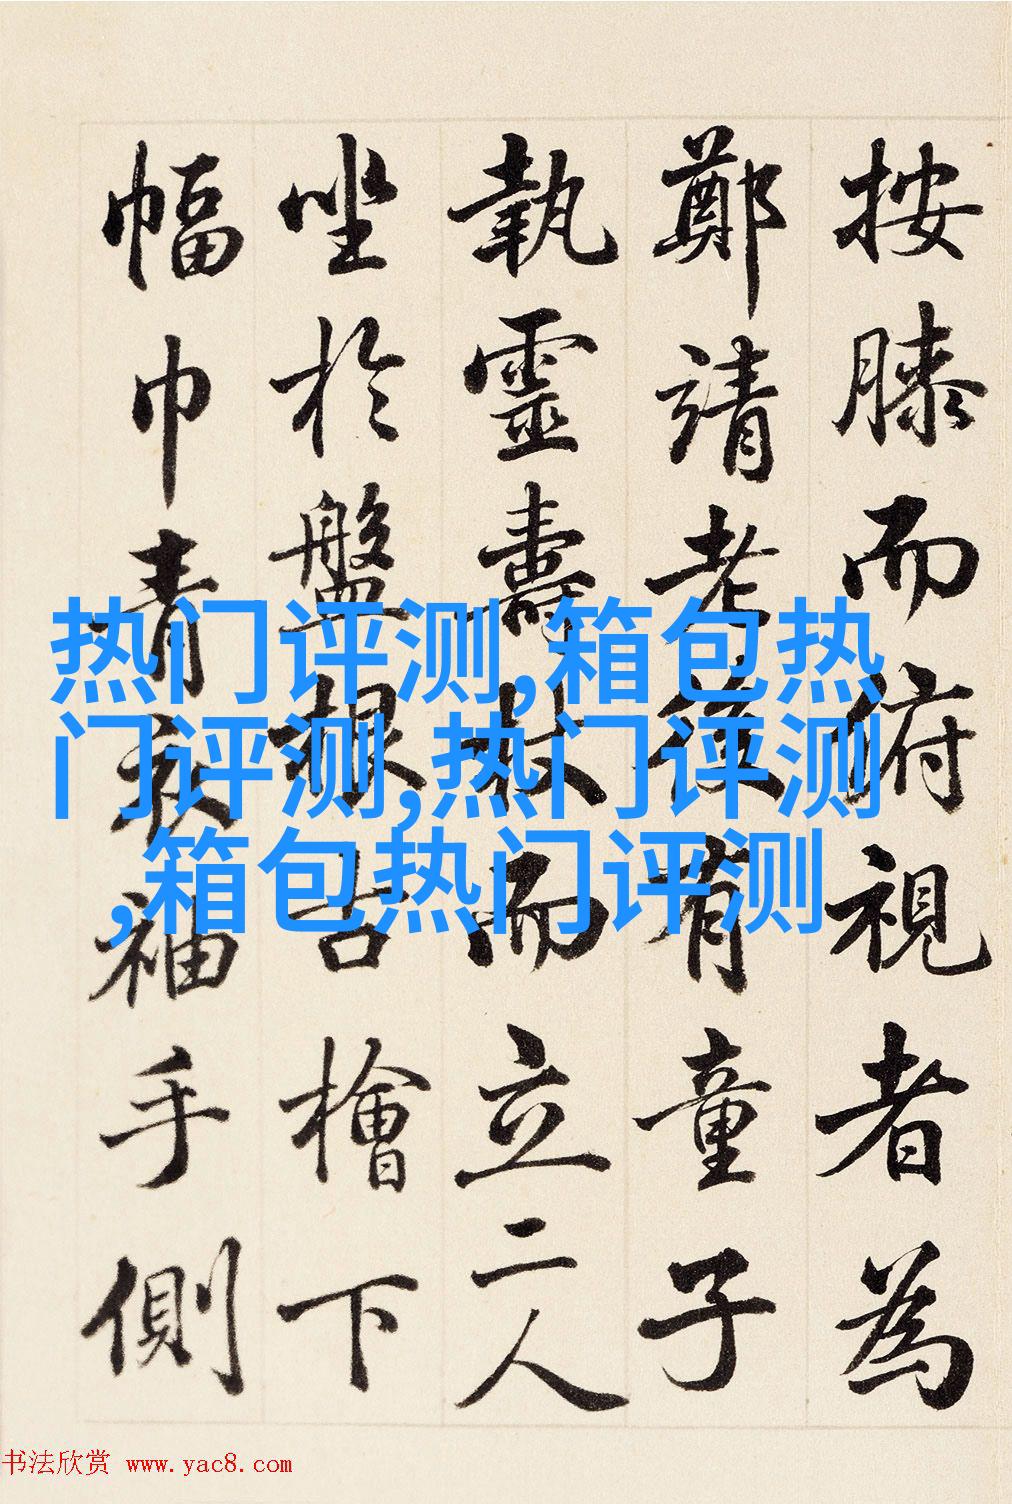 按膝而俯視者為
鄭靖老後有童子
執靈壽杖而立二人
坐於盤根古檜下
幅巾青衣袖手側
热门评测,箱包热
门评测,热门评测
,箱包热门评测
书法欣赏 www.yac8.com